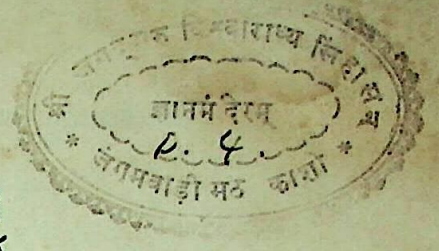 श्री जगद्गुरु विश्वाराध्य सिंहासन
ज्ञानमंदिरम्
P. 4.
* जंगमवाड़ी मठ काशी *